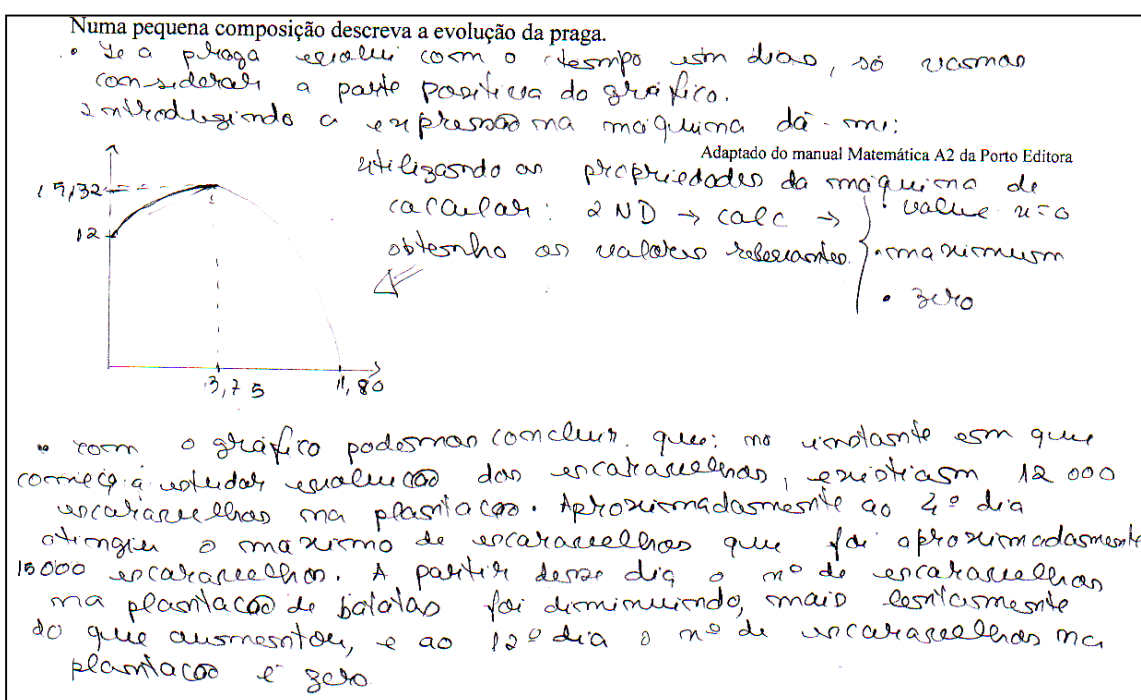 Numa pequena composição descreva a evolução da praga.
• Se a praga evolui com o tempo em dias, só vamos
considerar a parte positiva do gráfico.
Introduzindo a expressão na máquina dá-me:
Adaptado do manual Matemática A2 da Porto Editora
utilizando as propriedades da máquina de
calcular: 2ND → calc → • value x=0
obtenho os valores relevantes. • maximum
• zero
15,32
12
3,75
11,80
• com o gráfico podemos concluir que: no instante em que
comecei a estudar evolução dos escaravelhos, existiam 12 000
escaravelhos na plantação. Aproximadamente ao 4º dia
atingiu o maximo de escaravelhos que foi aproximadamente
15000 escaravelhos. A partir desse dia o nº de escaravelhos
na plantação de batatas foi diminuindo, mais lentamente
do que aumentou, e ao 12º dia o nº de escaravelhos na
plantação é zero